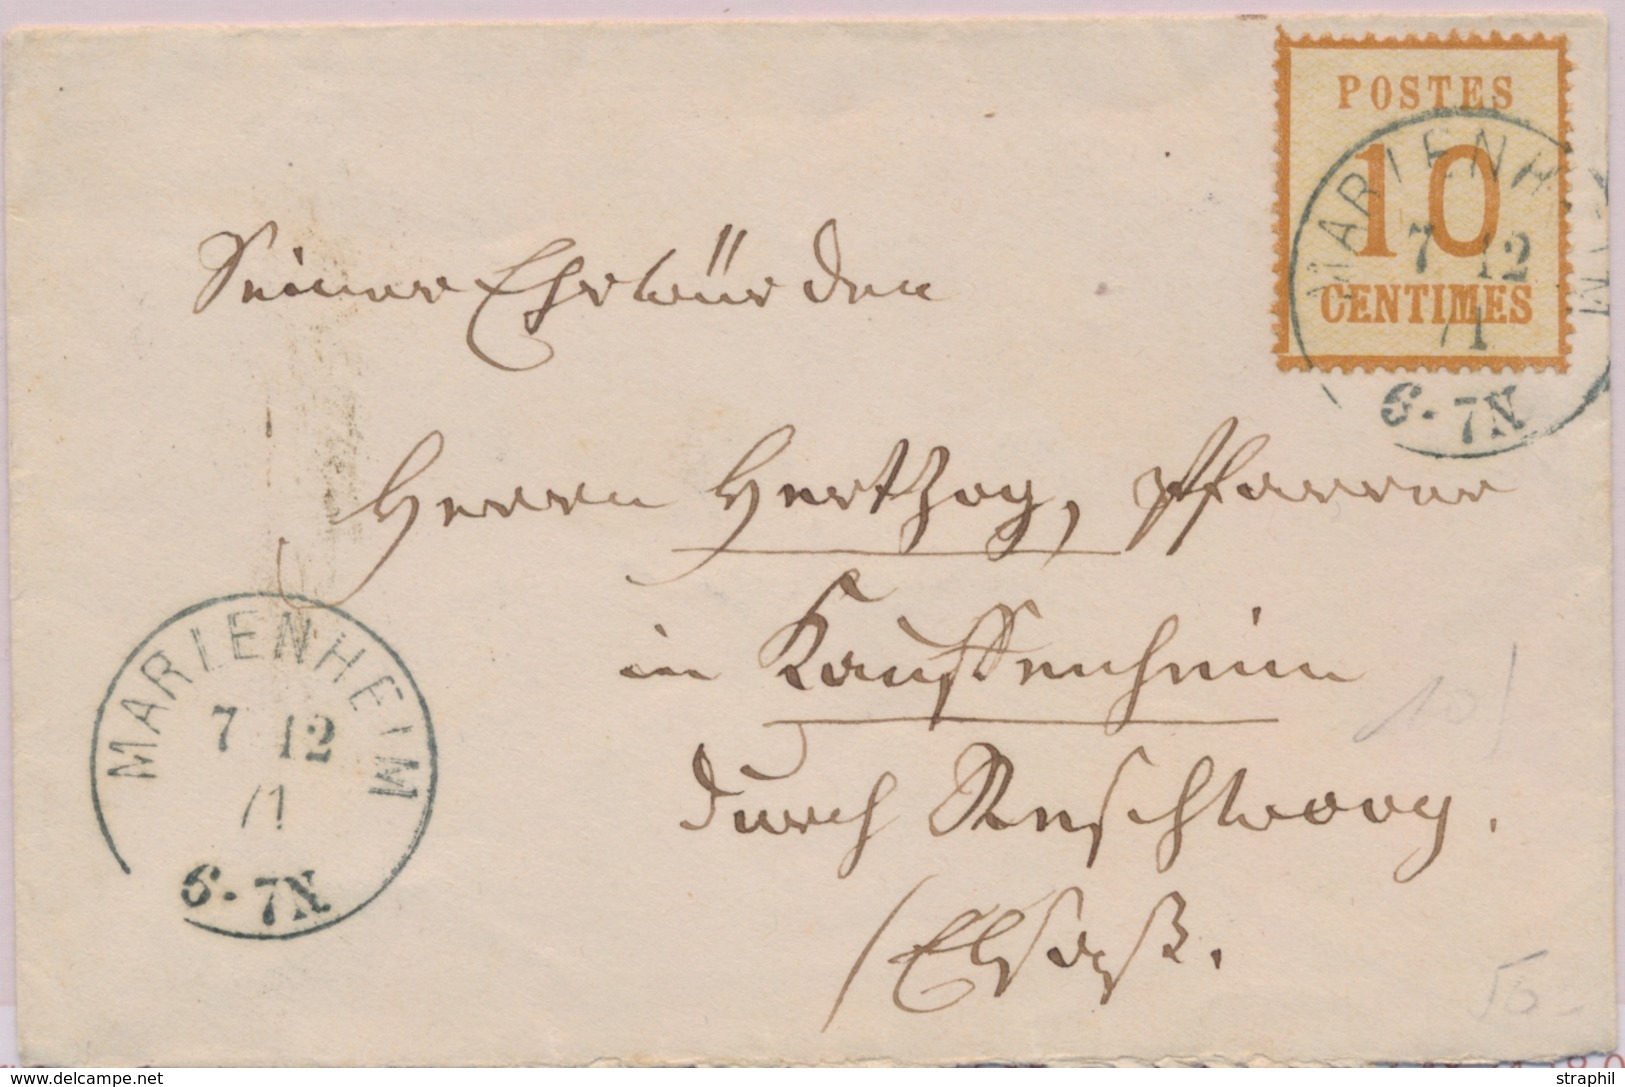 POSTES
10
CENTIMES
MARIENH IM
7 12
71
6-7N
Seiner Ehrwürden
Herrn Hertzog, Pfarrer
in Kauffenheim
durch Röschwoog.
(Elsaß.
MARIENHEIM
7 12
71
6-7N
101
delcampe.net
straphil